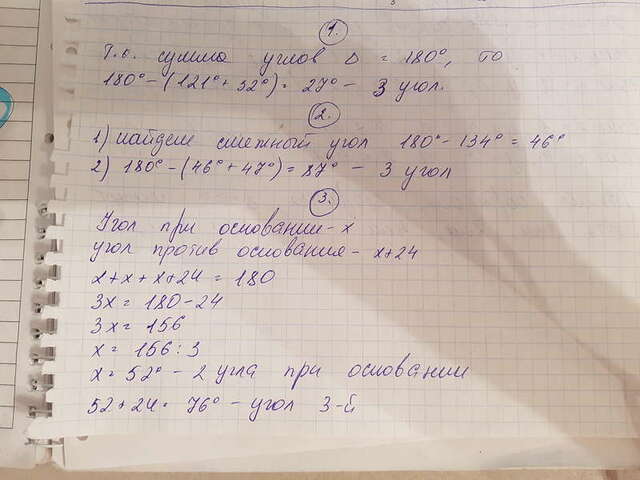 1.
Т.о. сумма углов Δ = 180°, то
180° - (121° + 32°) = 27° - 3 угол.
2.
1) найдем смежный угол 180° - 134° = 46°
2) 180° - (46° + 47°) = 87° - 3 угол
3.
Угол при основании - x
угол против основания - x+24
x + x + x + 24 = 180
3x = 180 - 24
3x = 156
x = 156 : 3
x = 52° - 2 угла при основании
52 + 24 = 76° - угол 3-й